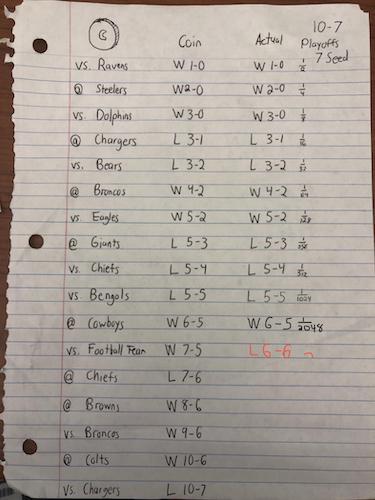 C Coin Actual 10-7
Playoffs
7 Seed
vs. Ravens W 1-0 W 1-0 1/2
@ Steelers W 2-0 W 2-0 1/4
vs. Dolphins W 3-0 W 3-0 1/8
@ Chargers L 3-1 L 3-1 1/16
vs. Bears L 3-2 L 3-2 1/32
@ Broncos W 4-2 W 4-2 1/64
vs. Eagles W 5-2 W 5-2 1/128
@ Giants L 5-3 L 5-3 1/256
vs. Chiefs L 5-4 L 5-4 1/512
vs. Bengals L 5-5 L 5-5 1/1024
@ Cowboys W 6-5 W 6-5 1/2048
vs. Football Team W 7-5 L 6-6
@ Chiefs L 7-6
@ Browns W 8-6
vs. Broncos W 9-6
@ Colts W 10-6
vs. Chargers L 10-7